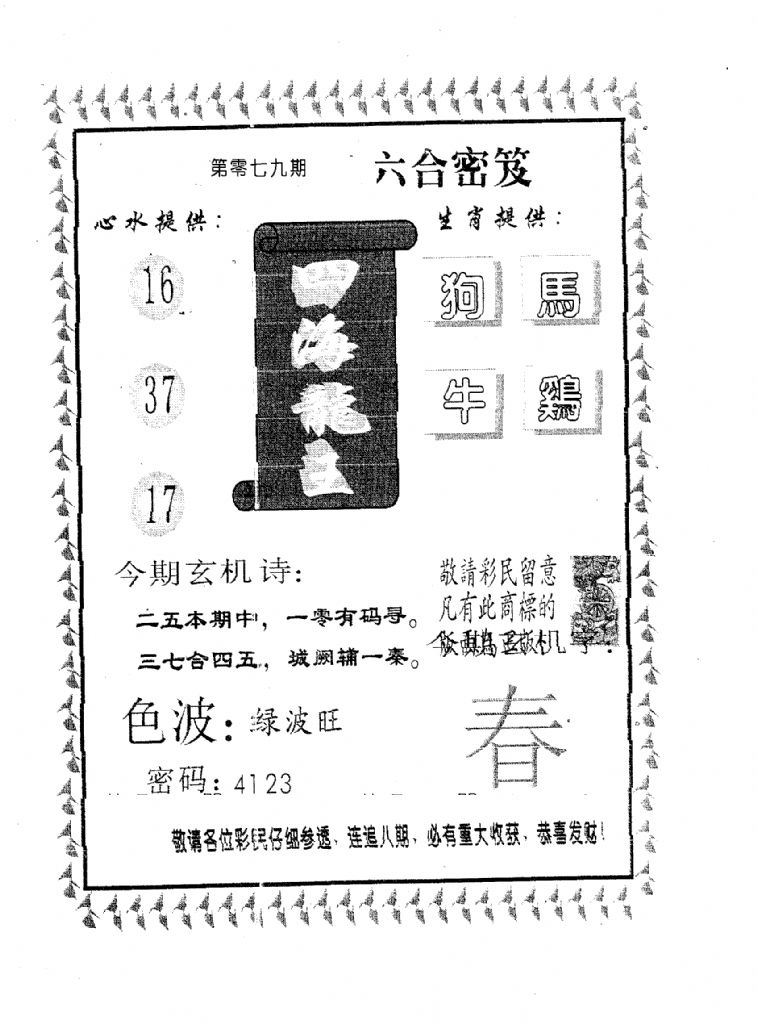 第零七九期
六合密笈
心水提供：
生肖提供：
16
37
17
四海龍
狗 馬
牛 鷄
今期玄机诗：
二五本期中，一零有码寻。
三七合四五，城阙辅一秦。
敬請彩民留意
凡有此商標的
色波：绿波旺
春
密码：4123
敬请各位彩民仔细参透、连追八期、必有重大收获、恭喜发财！